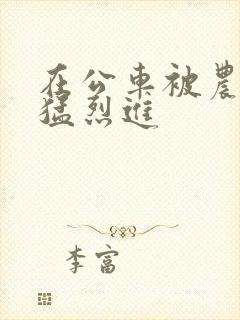 在公車被農
猛烈進
李富